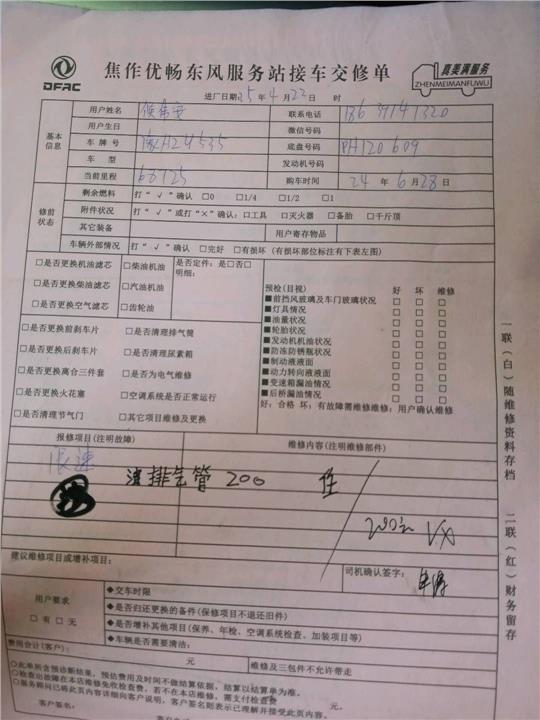 DFAC
焦作优畅东风服务站接车交修单
真美满服务
ZHENMEIMANFUWU
进厂日期:25年4月22日 时
基本信息
用户姓名 联系电话
用户生日 微信号码
车牌号 豫HZ4535 底盘号码 PH120609
车型 发动机号码
当前里程 66125 购车时间 24年6月28日
修前状态
剩余燃料 打“√”确认 □0 □1/4 □1/2 □1
附件状况 打“√”或打“×”确认:□工具 □灭火器 □备胎 □千斤顶
其它装备 用户寄存物品
车辆外部情况 打“√”确认 □完好 □有损坏(有损坏部位标注有下表左图)
□是否更换机油滤芯 □柴油机油 是否定件:是□否□
明细:
□是否更换柴油滤芯 □汽油机油
□是否更换空气滤芯 □齿轮油
预检(目视) 好 坏 维修
■前挡风玻璃及车门玻璃状况 □ □ □
■灯具情况 □ □ □
■油量状况 □ □ □
■轮胎状况 □ □ □
■发动机机油状况 □ □ □
■防冻防锈瓶状况 □ □ □
■制动液液面 □ □ □
■动力转向液液面 □ □ □
■变速箱漏油情况 □ □ □
■后桥漏油情况 □ □ □
好:合格 坏:有故障需维修维修:用户确认维修
□是否更换前刹车片 □是否清理排气筒
□是否更换后刹车片 □是否清理尿素箱
□是否更换离合三件套 □是否为电气维修
□是否更换火花塞 □空调系统是否正常运行
□是否清理节气门 □其它项目维修及更换
报修项目(注明故障) 维修内容(注明维修部件)
限速
排气管 200
200元
建议维修项目或增补项目:
司机确认签字:
用户要求
□有 □无
◆交车时限
◆是否归还更换的备件(保修项目不退还旧件)
◆是否增补其他项目(保养、年检、空调系统检查、加装项目等)
◆车辆是否需要清洁:
费用合计(客户): 元 维修及三包件不允许带走
○此单所含预诊断结果,预估费用及时间不做结算依据,结算以结算单为准。
○检查出故障在本店维修免收检查费,若不在本店维修,需支付检查费 元
○服务顾问已将此页内容详细向客户说明,客户签名则表示已理解并接受此页内容。
客户签名:
一联(白)随维修资料存档
二联(红)财务留存